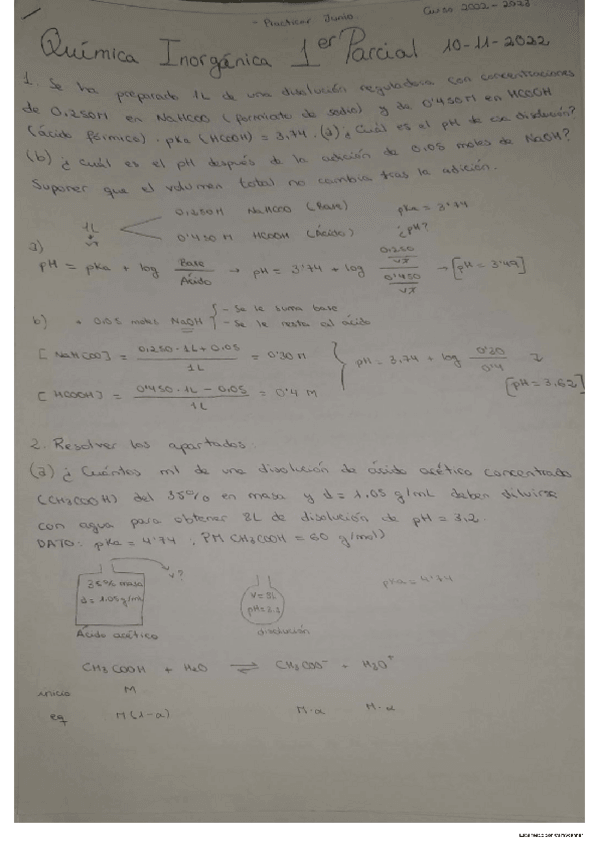 - Practicar Junio
Curso 2022-2023
Química Inorgánica 1er Parcial 10-11-2022
1. Se ha preparado 1L de una disolución reguladora con concentraciones
de 0,250M en NaHCOO (formiato de sodio) y de 0'450M en HCOOH
(ácido fórmico). pKa (HCOOH) = 3,74. (a) ¿Cuál es el pH de esa disolución?
(b) ¿cuál es el pH después de la adición de 0.05 moles de NaOH?
Suponer que el volumen total no cambia tras la adición.
1L
VT
0,250M NaHCOO (Base) pKa = 3'74
0'450 M HCOOH (Ácido) ¿pH?
a)
pH = pKa + log Base/Ácido → pH = 3'74 + log (0,250/VT)/(0'450/VT) → [pH = 3'49]
b) + 0,05 moles NaOH { - Se le suma base
- Se le resta al ácido
[NaHCOO] = (0,250·1L + 0,05)/1L = 0'30 M
pH = 3,74 + log 0'30/0'4
[HCOOH] = (0'450·1L - 0,05)/1L = 0'4 M
[pH = 3,62]
2. Resolver los apartados:
(a) ¿Cuántos ml de una disolución de ácido acético concentrado
(CH3COOH) del 35% en masa y d = 1,05 g/mL deben diluirse
con agua para obtener 8L de disolución de pH = 3,2.
DATO: pKa = 4'74 ; PM CH3COOH = 60 g/mol)
35% masa
d = 1.05 g/mL
V?
Ácido acético
pH = 3.2
disolución
pKa = 4'74
CH3COOH + H2O ⇌ CH3COO- + H3O+
inicio M
eq M(1-α) M·α M·α